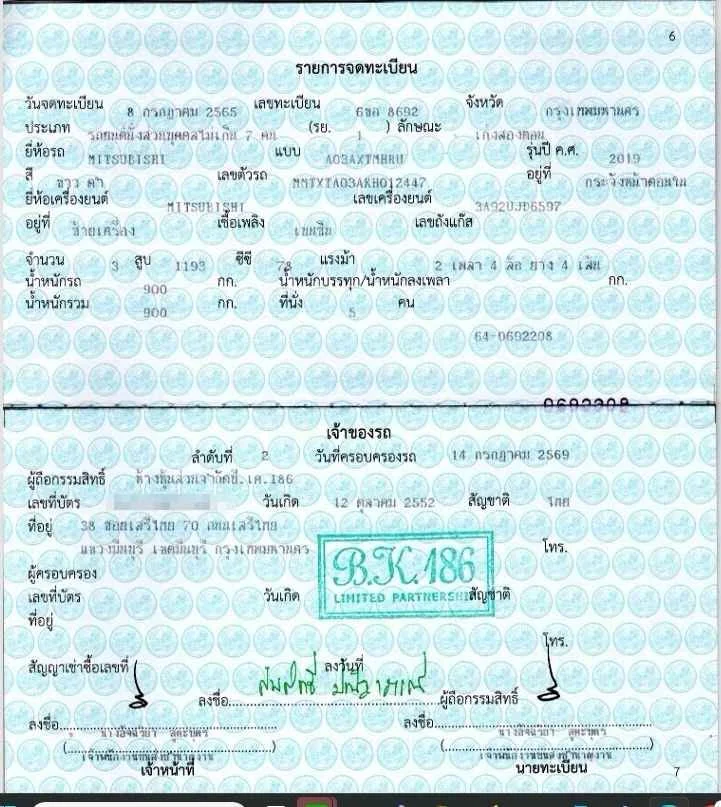 6
รายการจดทะเบียน
วันจดทะเบียน 8 กรกฎาคม 2565 เลขทะเบียน 6ขอ 8692 จังหวัด กรุงเทพมหานคร
ประเภท รถยนต์นั่งส่วนบุคคลไม่เกิน 7 คน (รย. 1 ) ลักษณะ เก๋งสองตอน
ยี่ห้อรถ MITSUBISHI แบบ A03AXTMHRU รุ่นปี ค.ศ. 2019
สี ขาว ดำ เลขตัวรถ MMTXTA03AKH012447 อยู่ที่ กระจังหน้าตอนใน
ยี่ห้อเครื่องยนต์ MITSUBISHI เลขเครื่องยนต์ 3A92UJD6597
อยู่ที่ ซ้ายเครื่อง เชื้อเพลิง เบนซิน เลขถังแก๊ส
จำนวน 3 สูบ 1193 ซีซี 78 แรงม้า 2 เพลา 4 ล้อ ยาง 4 เส้น
น้ำหนักรถ 900 กก. น้ำหนักบรรทุก/น้ำหนักลงเพลา กก.
น้ำหนักรวม 900 กก. ที่นั่ง 5 คน
64-0692208
0692208
เจ้าของรถ
ลำดับที่ 2 วันที่ครอบครองรถ 14 กรกฎาคม 2569
ผู้ถือกรรมสิทธิ์ ห้างหุ้นส่วนจำกัดบี.เค.186
เลขที่บัตร วันเกิด 12 ตุลาคม 2552 สัญชาติ ไทย
ที่อยู่ 38 ซอยเสรีไทย 70 ถนนเสรีไทย
แขวงมีนบุรี เขตมีนบุรี กรุงเทพมหานคร โทร.
B.K.186
LIMITED PARTNERSHI
ผู้ครอบครอง
เลขที่บัตร วันเกิด สัญชาติ
ที่อยู่
โทร.
สัญญาเช่าซื้อเลขที่ ลงวันที่
ลงชื่อ ผู้ถือกรรมสิทธิ์
ลงชื่อ ลงชื่อ
เจ้าพนักงานขนส่งชำนาญงาน เจ้าพนักงานขนส่งชำนาญงาน
เจ้าหน้าที่ นายทะเบียน 7